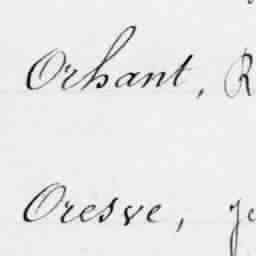 Orhant, R
Oresve, je